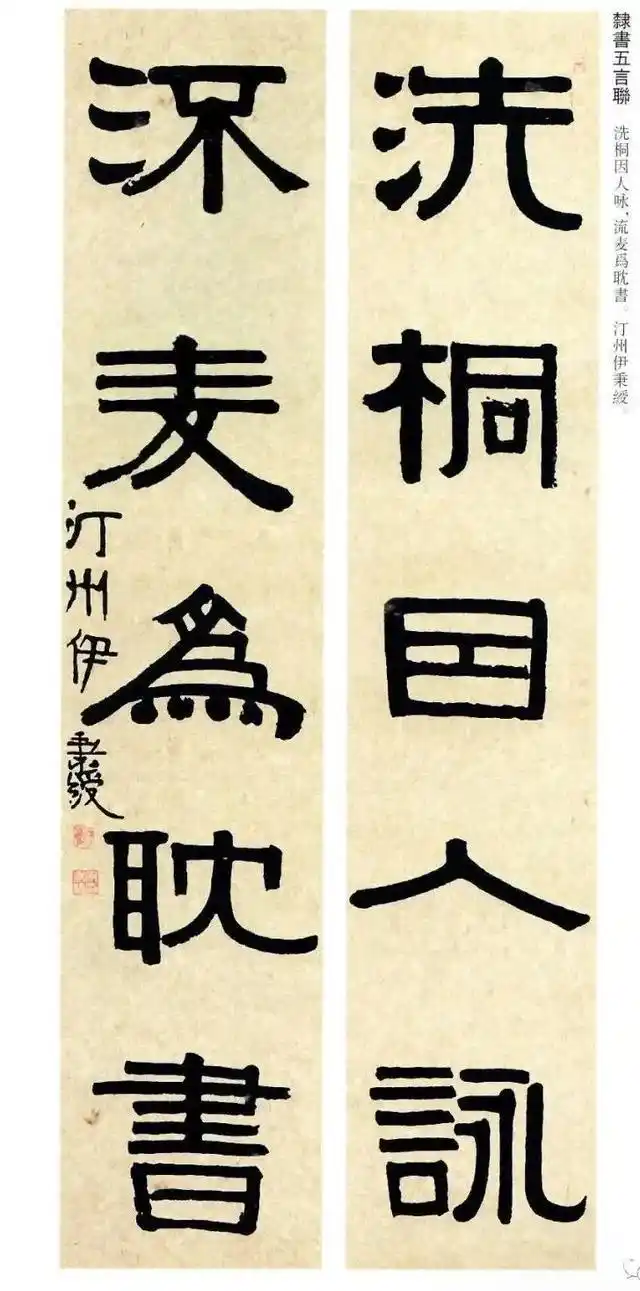 隸書五言聯 洗桐因人咏,流麦爲耽書。汀州伊秉綬。
洗桐因人詠
流麦爲耽書
汀州伊秉綬